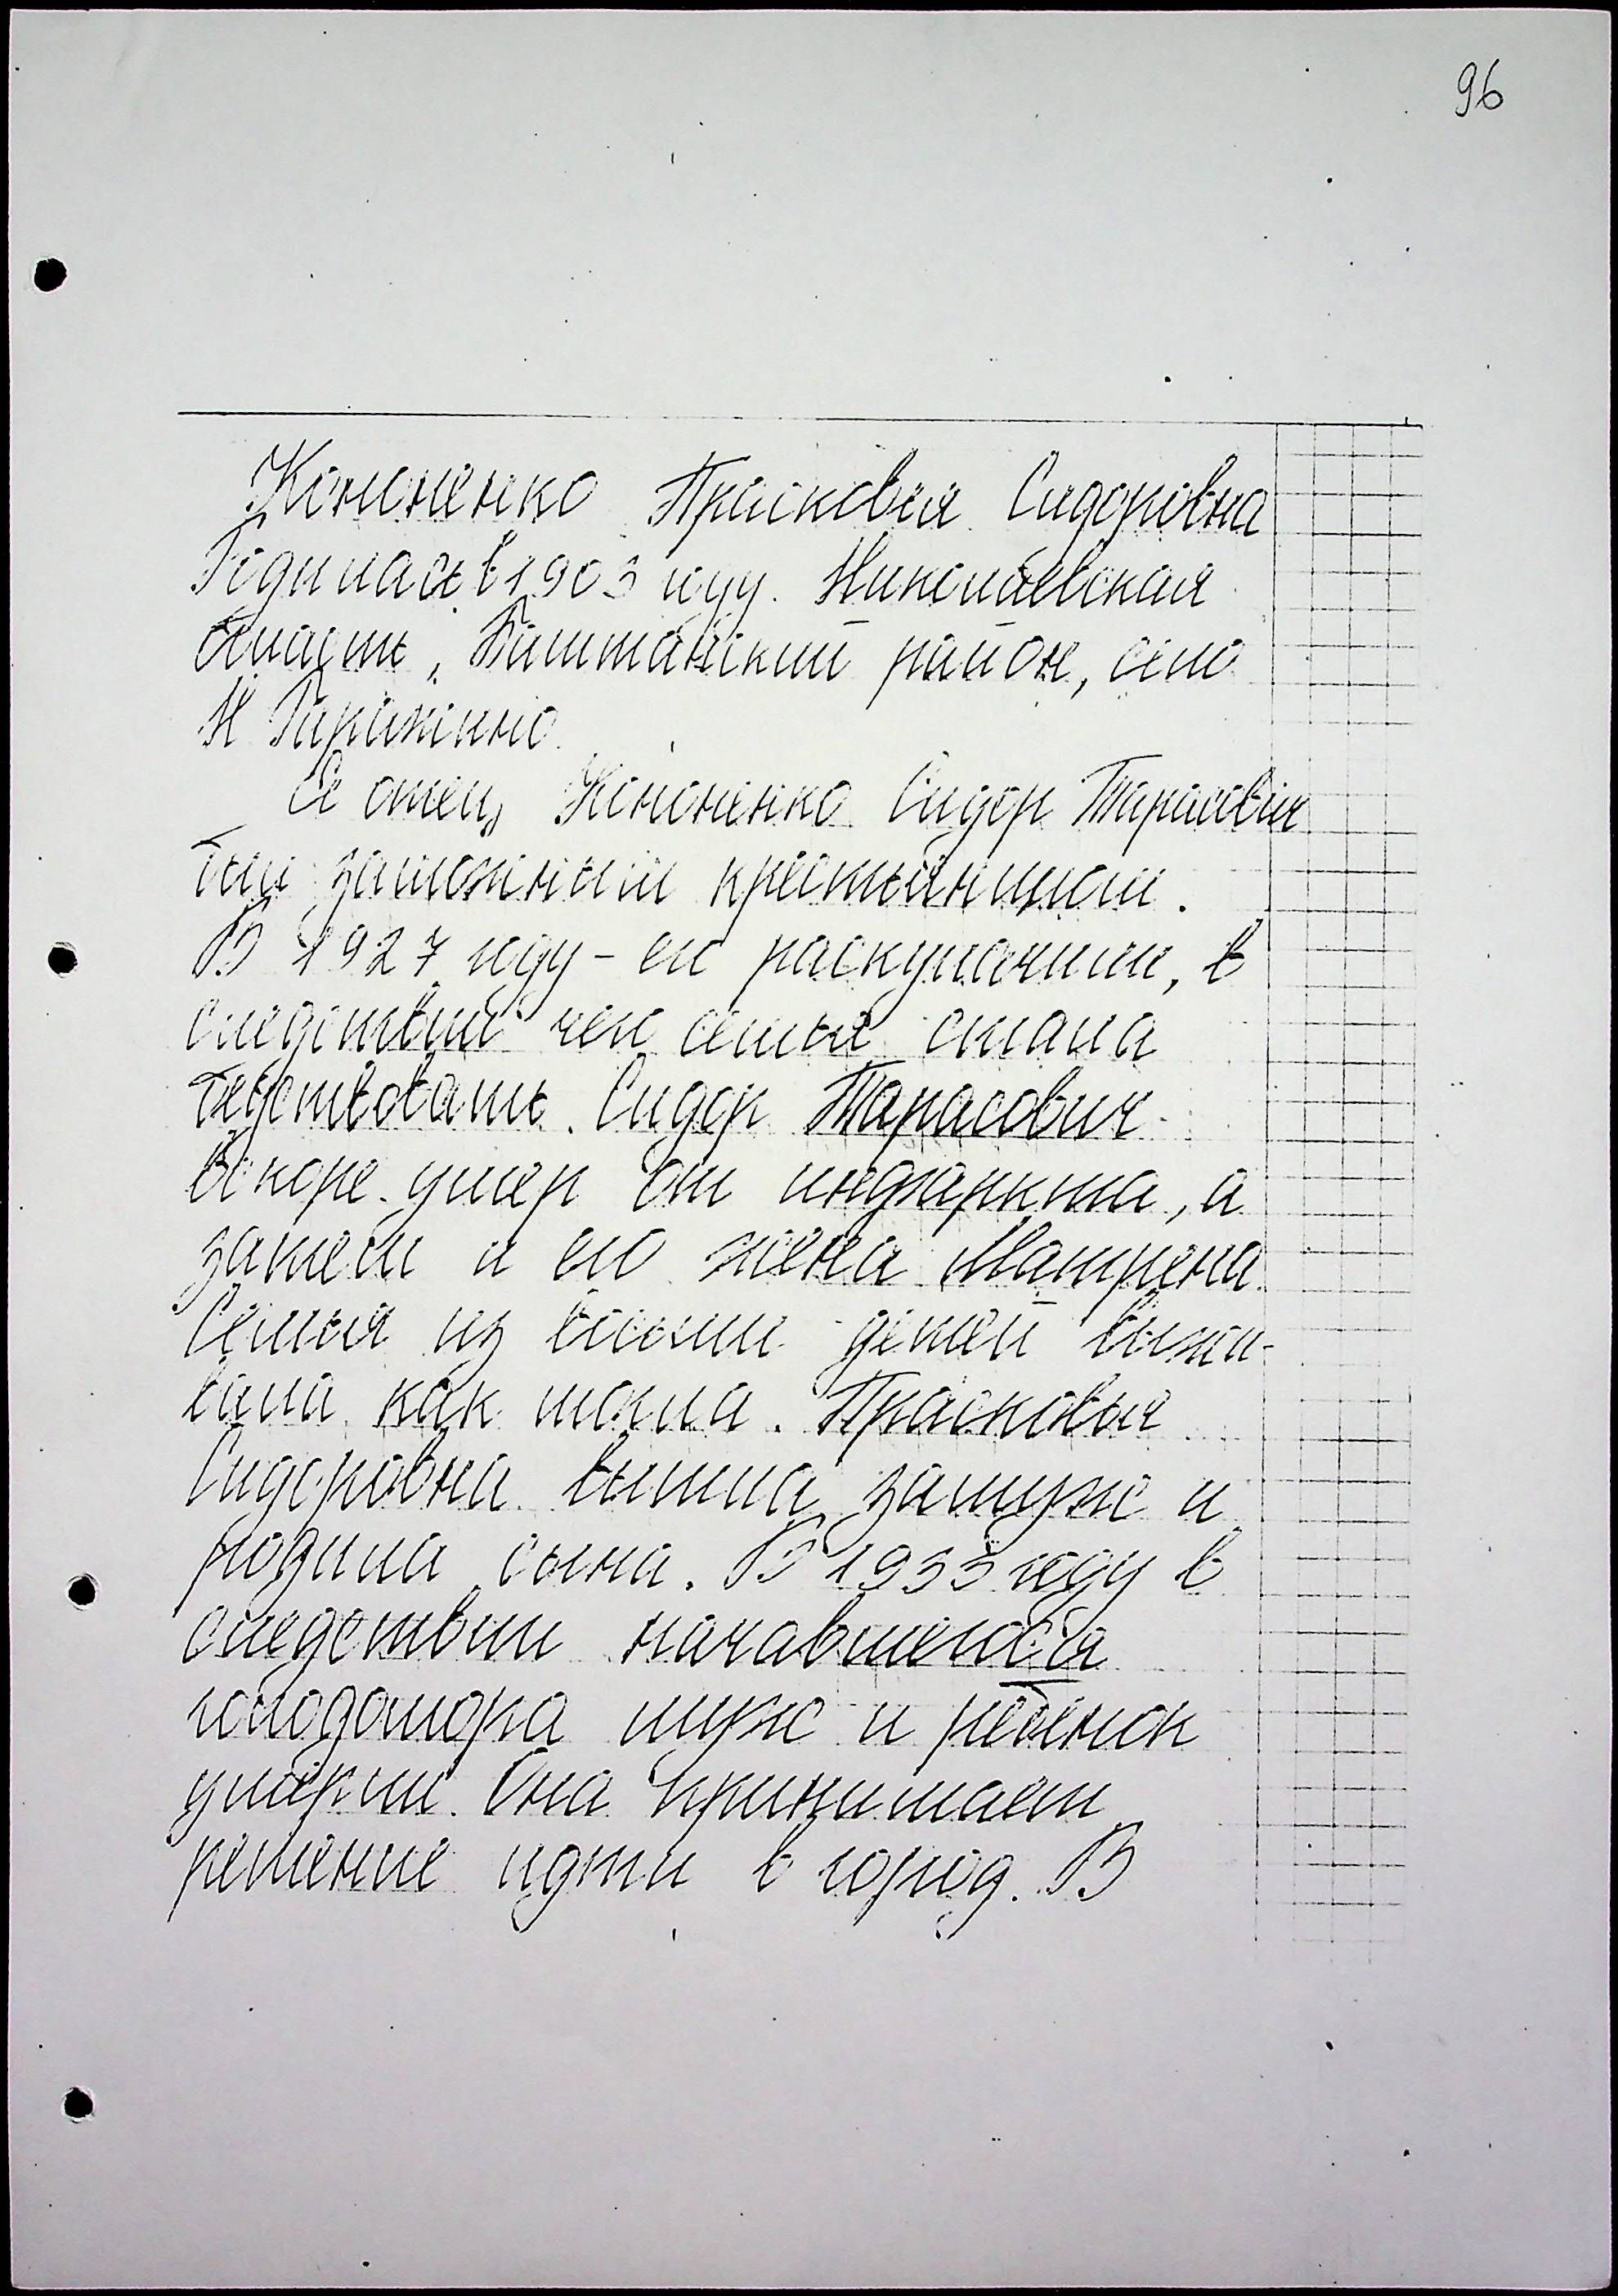 96
Кононенко Прасковья Сидоровна
Родилась в 1903 году. Николаевская
область, Баштанский район, село
Н
Ее отец, Кононенко Сидор Тарасович
был заможным крестьянином.
В 1927 году - его раскулачили, в
следствии чего семья стала
бедствовать. Сидор Тарасович
вскоре умер от инфаркта, а
затем и его жена Матрена.
Семья из восьми детей выжи-
вала как могла. Прасковья
Сидоровна вышла замуж и
родила сына. В 1933 году в
следствии начавшегося
голодомора муж и ребенок
умерли. Она принимает
решение идти в город. В